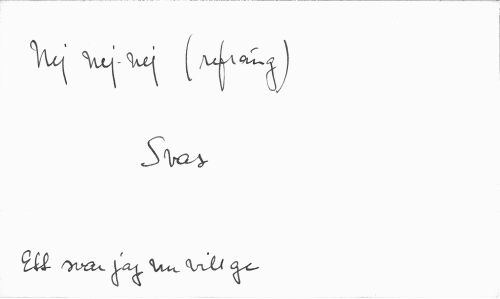 Nej nej-nej (refräng)
Svar
Ett svar jag nu vill ge